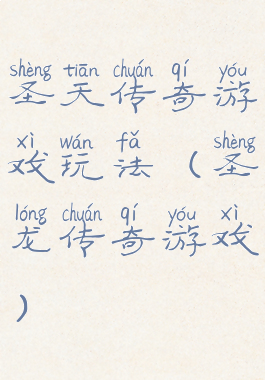 shèng tiān chuán qí yóu
圣天传奇游
xì wán fǎ shèng
戏玩法（圣
lóng chuán qí yóu xì
龙传奇游戏
）